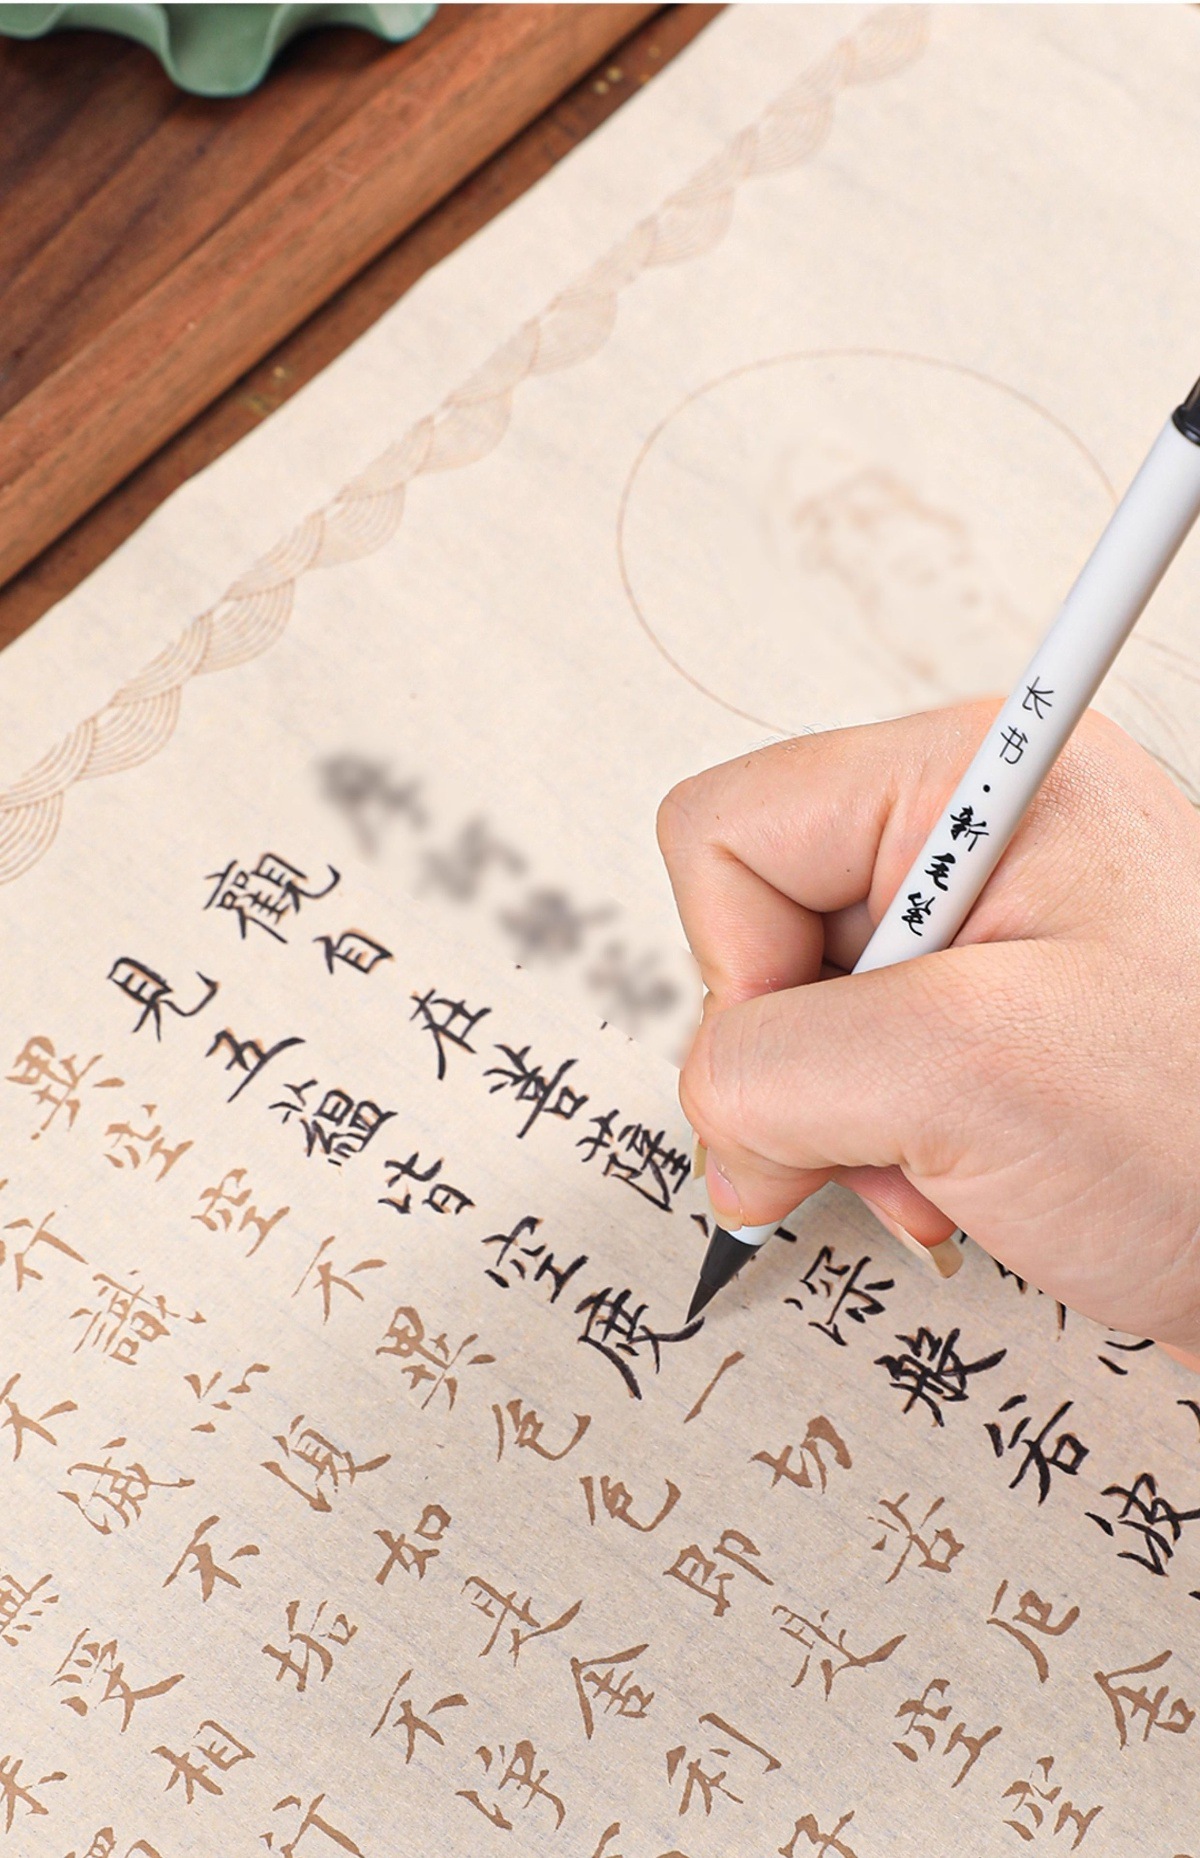 长书·新毛笔
觀自在菩薩深般若波
見五蘊皆空度一切苦厄舍
異空空不異色色即是空空
行識亦復如是舍利子
不滅不垢不淨
無受相行